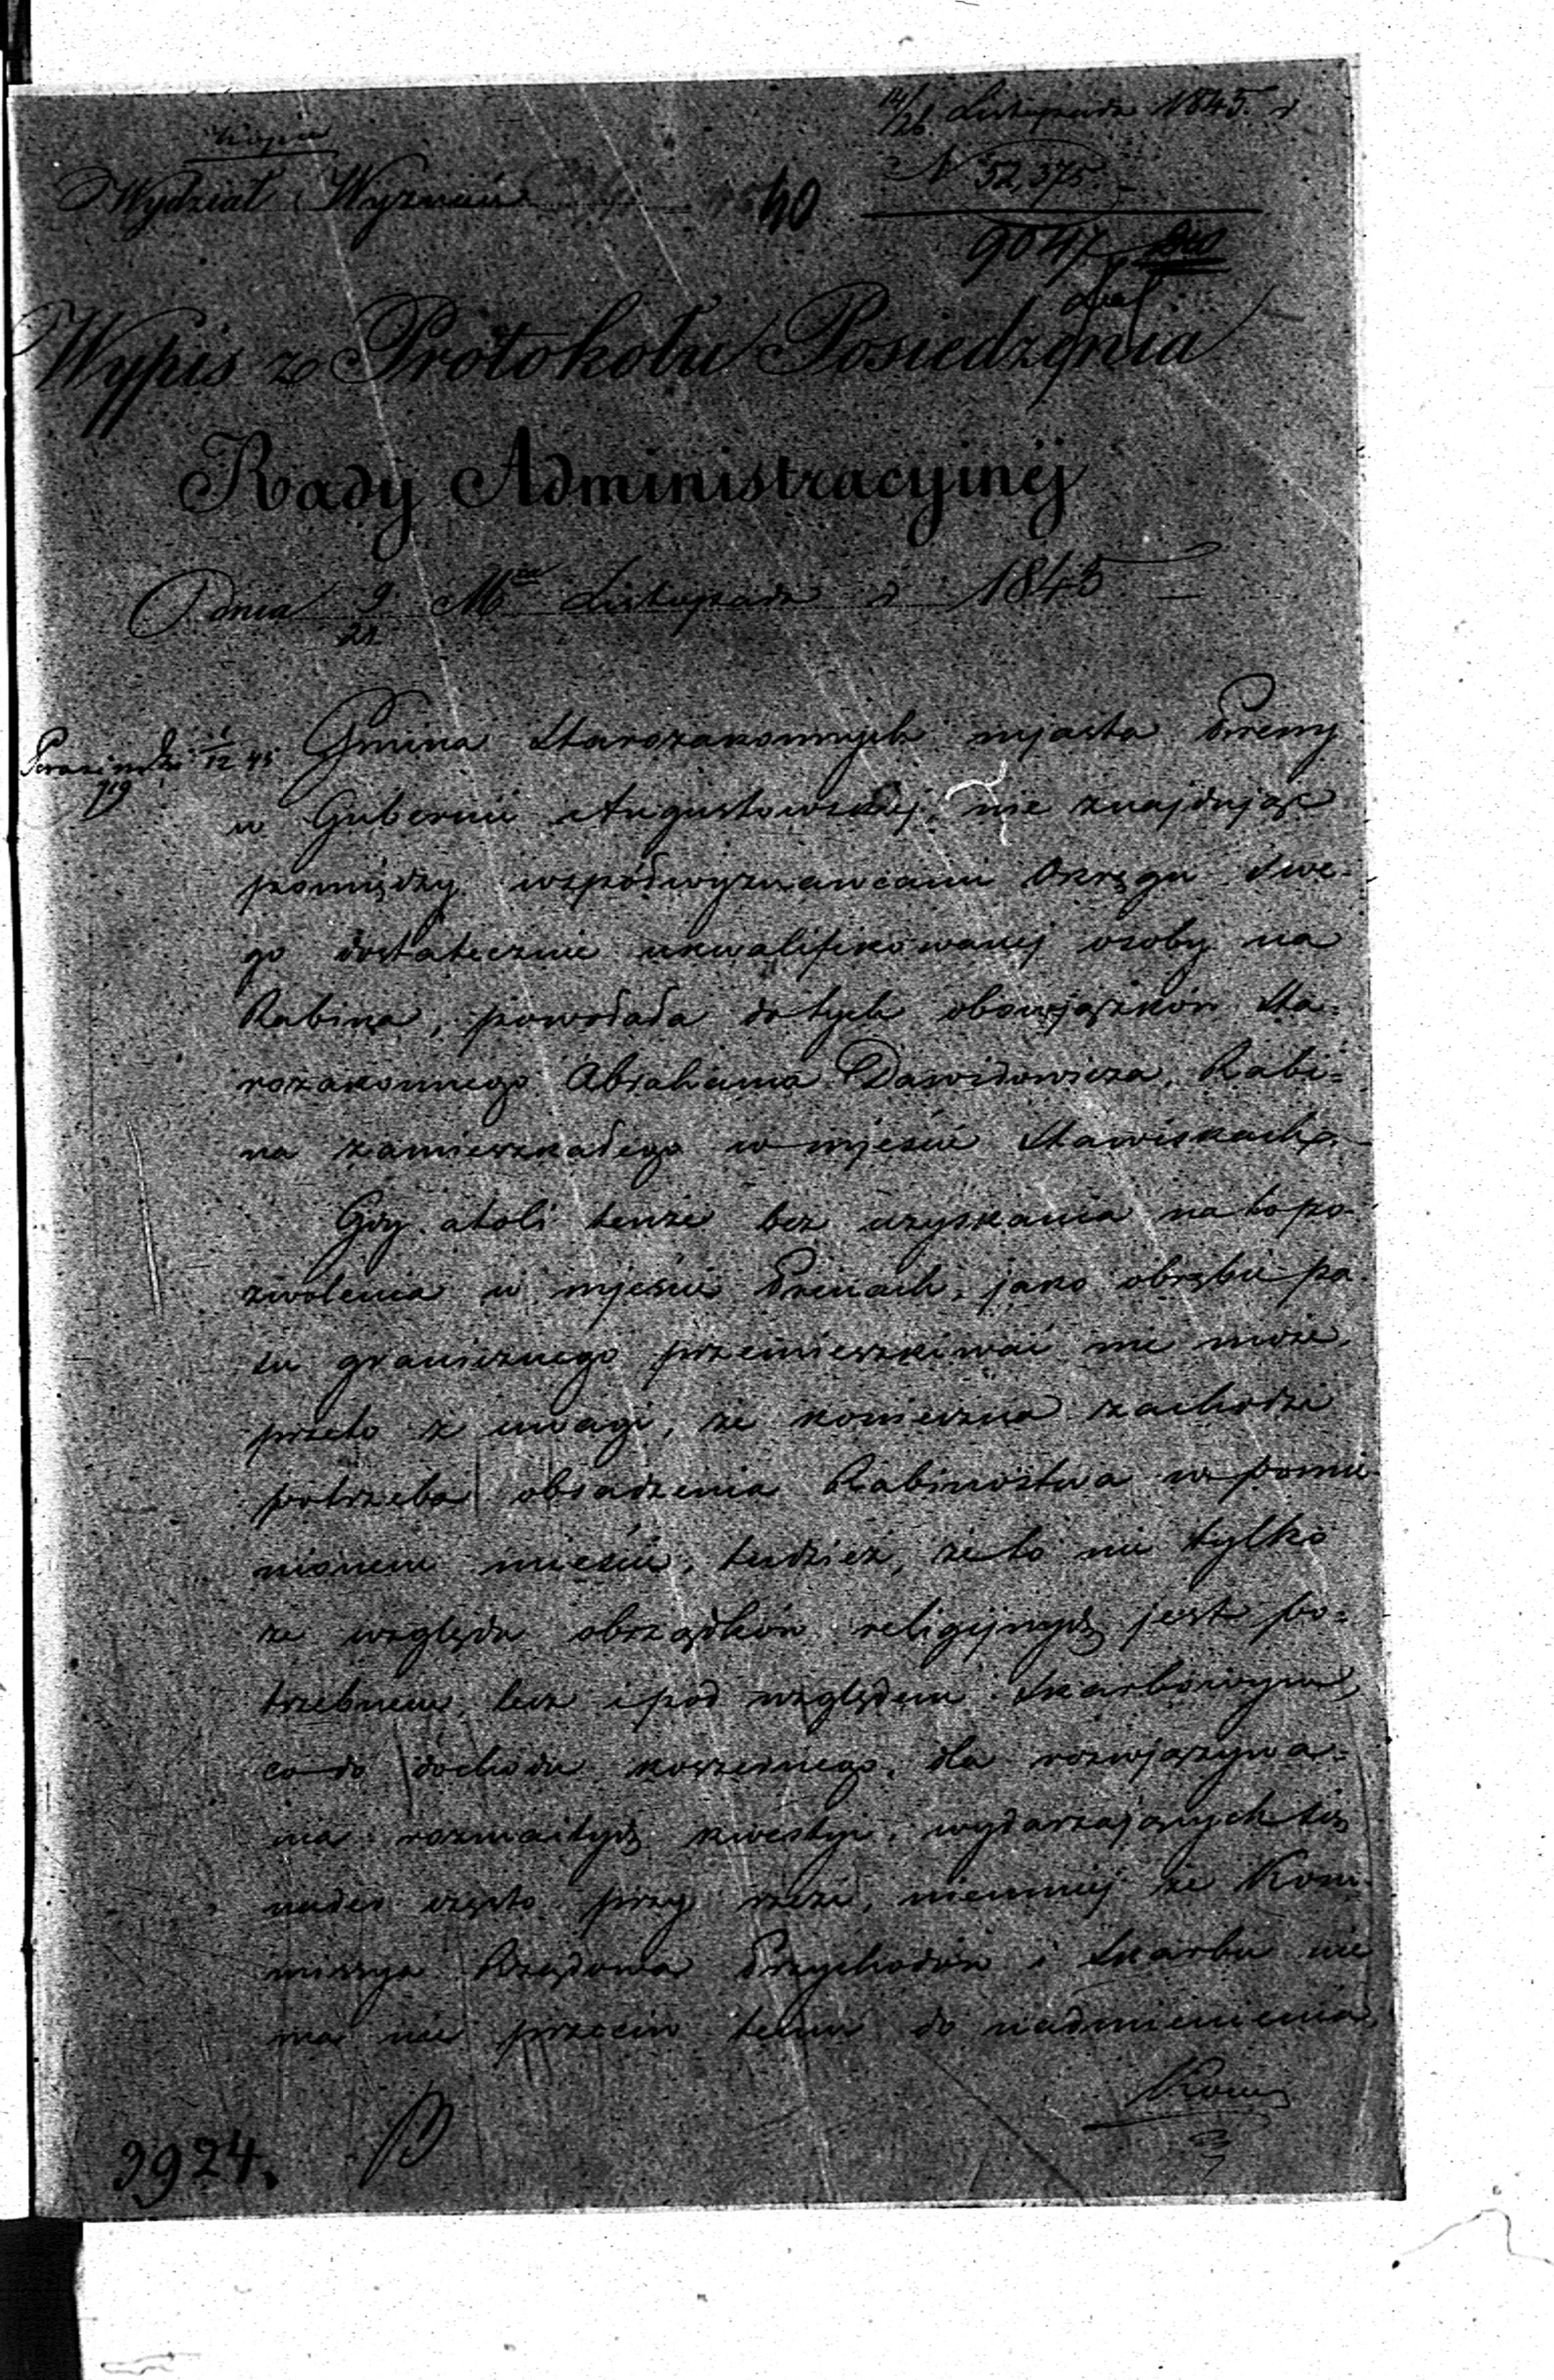 14/26 Listopada 1845 r
Kopia
N 52,375.
Wydział Wyznań 40
9047
Wypis z Protokołu Posiedzenia
Rady Administracyjnéj
Dnia 9/21 Mca Listopada r 1845
Gmina Starozakonnych mjasta Preny
w Gubernii Augustowskiej, nie znajdując
pomiędzy współwyznawcami Okręgu swe-
go dostatecznie ukwalifikowanej osoby na
Rabina, powołała do tych obowjązków Sta=
rozakonnego Abrahama Dawidowicza, Rabi=
na zamieszkałego w mjeście Stawiskach.
Gdy atoli tenże bez uzyskania na to po-
zwolenia w mjeście Prenach, jako obrębie pa-
su granicznego przemieszkiwać nie może,
przeto z uwagi, że konieczna zachodzi
potrzeba obsadzenia Rabinostwa w pomie-
nionem mieście, tudzież, że to nie tylko
ze względu obrządków religijnych jest po=
trzebnem, lecz i pod względem Skarbowym,
co do dochodu koszernego, dla rozwjązywa=
nia rozmaitych kwestyi, wydarzających się
nader często przy rzezi, niemniej że Kom-
missya Rządowa Przychodów i Skarbu nie
ma nic przeciw temu do nadmienienia,
Kom
3924.